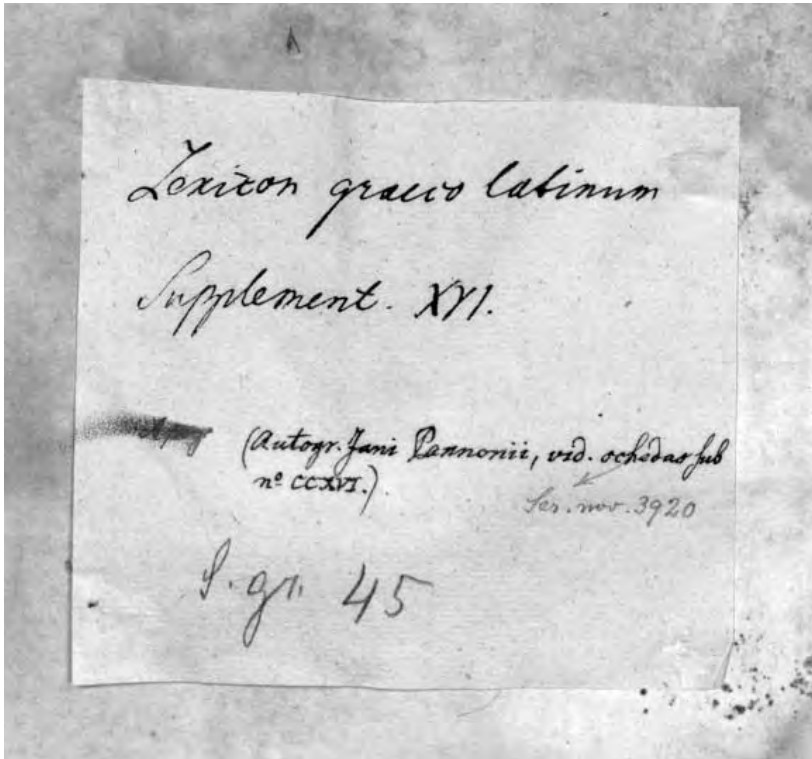 Lexicon graeco latinum
Supplement. XVI.
(Autogr. Jani Pannonii, vid. schedas sub
nº CCXVI.)
Ser. nov. 3920
S. gr. 45